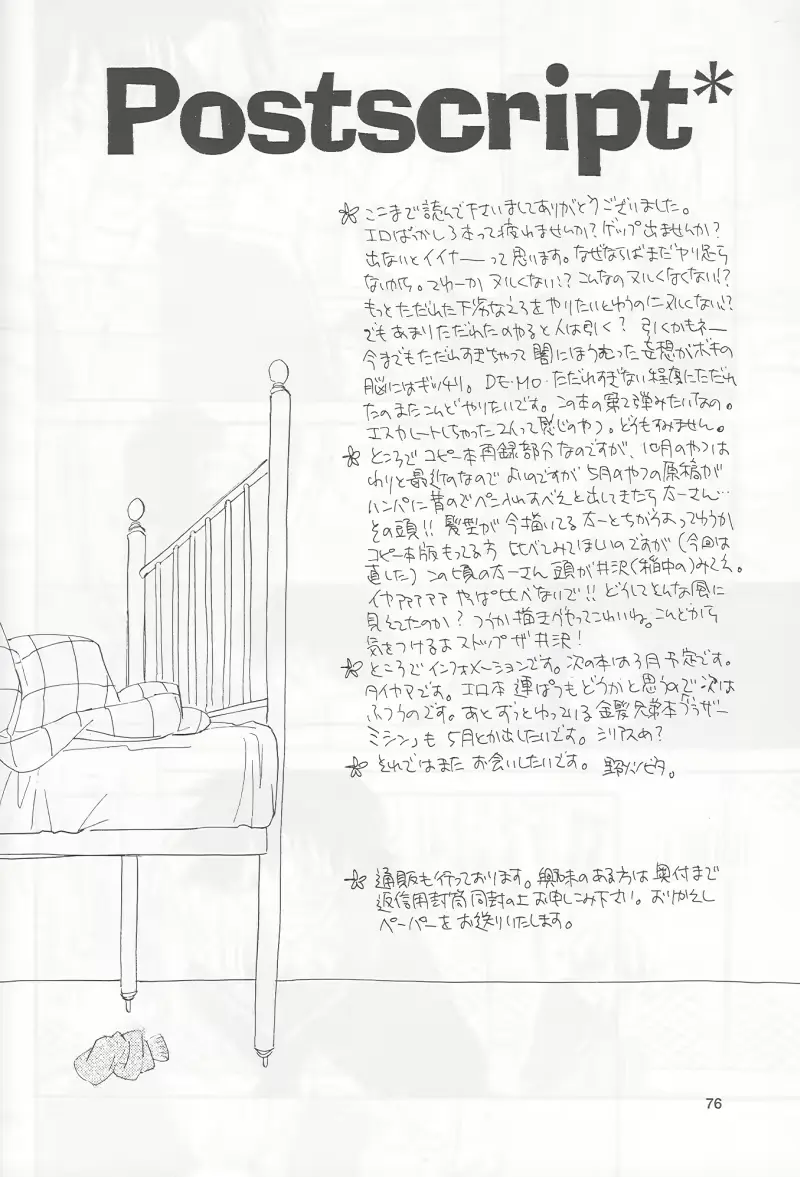 Postscript*
ここまで読んで下さいましてありがとうございました。
エロばっかしる本って疲れませんか?ゲップ出ませんか?
出ないとイイナーって思います。なぜならばまだヤり足ら
ないから。てゆーか ヌルくない!?こんなの ヌルくなくない!?
もっとただれた下劣なえろをやりたいとゆうのにヌルくない!?
でもあまりただれたのやると人は引く? 引くかもネー
今までもただれすぎちゃって闇にほうむった妄想がボキの
脳にはギッチリ。DE・MO・ただれすぎない程度にただれ
たのまたこんどやりたいです。この本の第2弾みたいなの。
エスカレートしちゃった2人って感じのやつ。どうもすみません。
ところでコピー本再録部分なのですが、10月のやつは
わりと最近のなのでよいのですが5月のやつの原稿が
ハンパに昔のでペンいれすべえと出してきたら太一さん…
その頭!!髪型が今描いてる太一とちがうよってゆうか
コピー本版もってる方 比べてみてほしいのですが(今回は
直した)この頃の太一さん 頭が井沢(稲中の)みてえ。
イヤアアアア やっぱ比べないで!!どうしてこんな風に
見えてたのか?つうか描きぐせってこわいね。こんどから
気をつけるよストップ ザ 井沢!
ところでインフォメーションです。次の本は3月予定です。
タイヤマです。エロ本 連ぱつもどうかと思うので次は
ふつうのです。あと ずっとゆっている金髪兄弟本「ブラザー
ミシン」も 5月とか出したいです。シリアスめ?
それではまた お会いしたいです。
通販も行っております。興味のある方は奥付まで
返信用封筒同封の上お申しこみ下さい。おりかえし
ペーパーをお送りいたします。
76